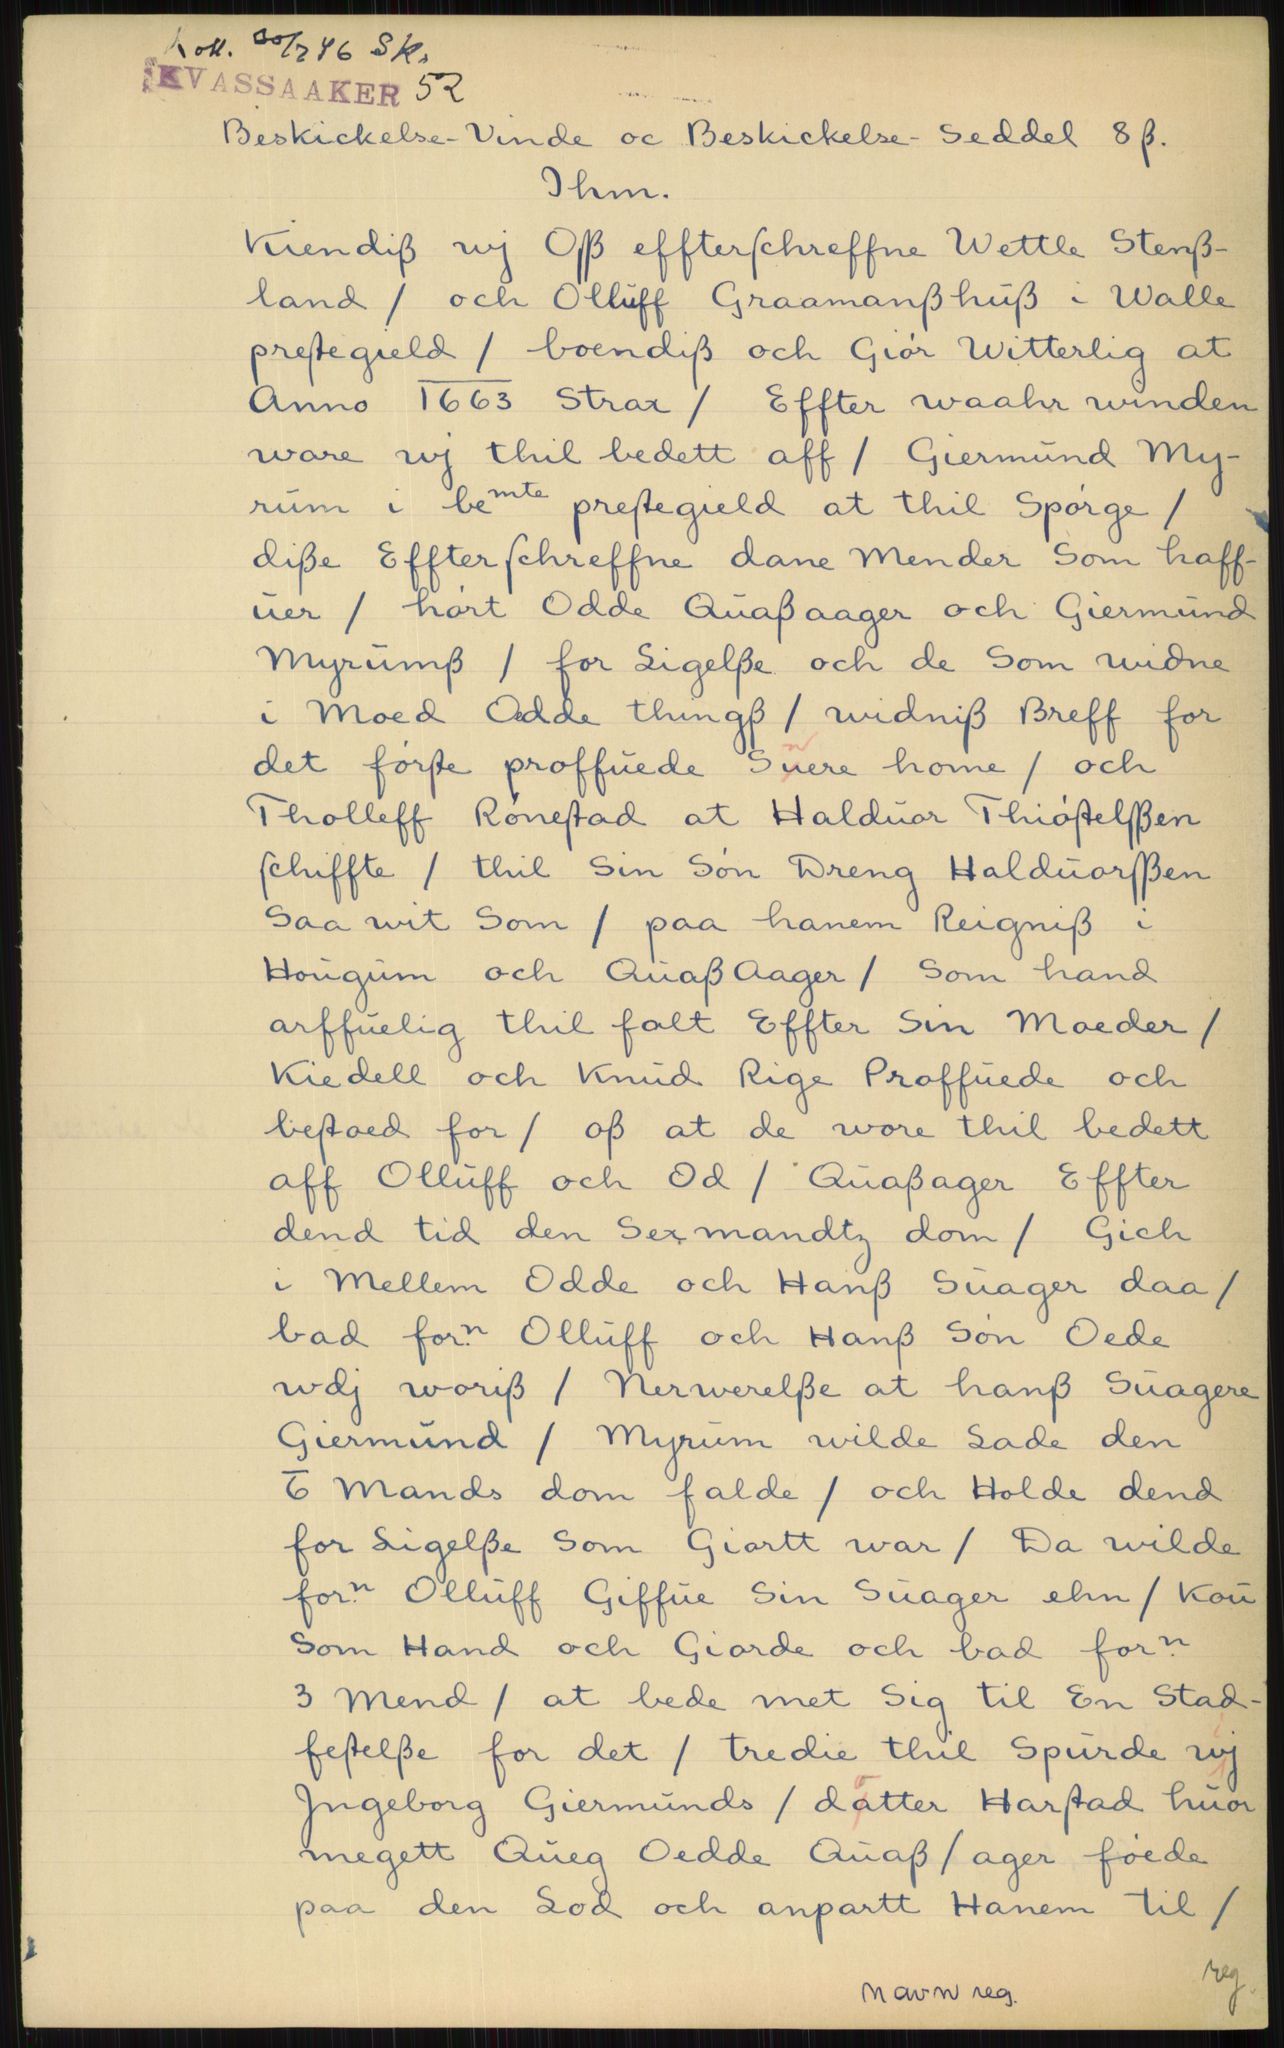 Koll. 30/7 46 Sk.
KVASSAAKER 52
Beskickelse-Vinde oc Beskickelse-Seddel 8 β.
Ihm.
Kiendiß wj Oß effterschreffne Wettle Stenß-
land / och Olluff Graamanßhuß i Walle
prestegield / boendiß och Giór Witterlig at
Anno 1663 Strax / Effter waahr winden
ware wj thil bedett aff / Giermund My-
rum i bemte prestegield at thil Spórge /
diße Effterschreffne dane Mender Som haff-
uer / hórt Odde Quaßaager och Giermund
Myrumß / for Ligelße och de Som widne
i Moed Odde thingß / widniß Breff for
det fórste proffuede Suere home / och
Tholleff Rónestad at Halduor Thióstelßen
schiffte / thil Sin Són Dreng Halduorßen
Saa wit Som / paa hanem Reigniß i
Hougum och Quaß Aager / Som hand
arffuelig thil falt Effter Sin Moeder /
Kiedell och Knud Rige Proffuede och
bestoed for / oß at de wore thil bedett
aff Olluff och Od / Quaßager Effter
dend tid den Sexmandtz dom / Gich
i Mellem Odde och Hanß Suager daa /
bad forn Olluff och Hanß Són Oede
wdj woriß / Nerwerelße at hanß Suagere
Giermund / Myrum wilde Lade den
6 Mands dom falde / och Holde dend
for Ligelße Som Giortt war / Da wilde
forn Olluff Giffue Sin Suager ehn / Kou
Som Hand och Giorde och bad forn
3 Mend / at bede met Sig til En Stad-
festelße for det / tredie thil Spurde wj
Jngeborg Giermunds / datter Harstad huor
megett Queg Oedde Quaß / ager fóede
paa den Lod och anpartt Hanem til /
navn reg.
reg.